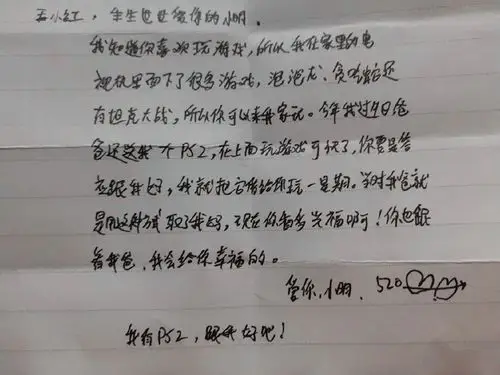 王小红，生生世世爱你的小明。
我知道你喜欢玩游戏，所以我在家里的电
视机里面下了很多游戏，泡泡龙、贪吃蛇还
有坦克大战，所以你可以来我家玩。今年我过生日爸
爸还送我一个PS2，在上面玩游戏可快了，你要是答
应跟我好，我就把它借给你玩一星期。当时我爸就
是用这种方式取了我妈，现在你看多幸福啊！你也跟
着我吧，我会给你幸福的。
爱你，小明、520
我有PS2，跟我好吧！